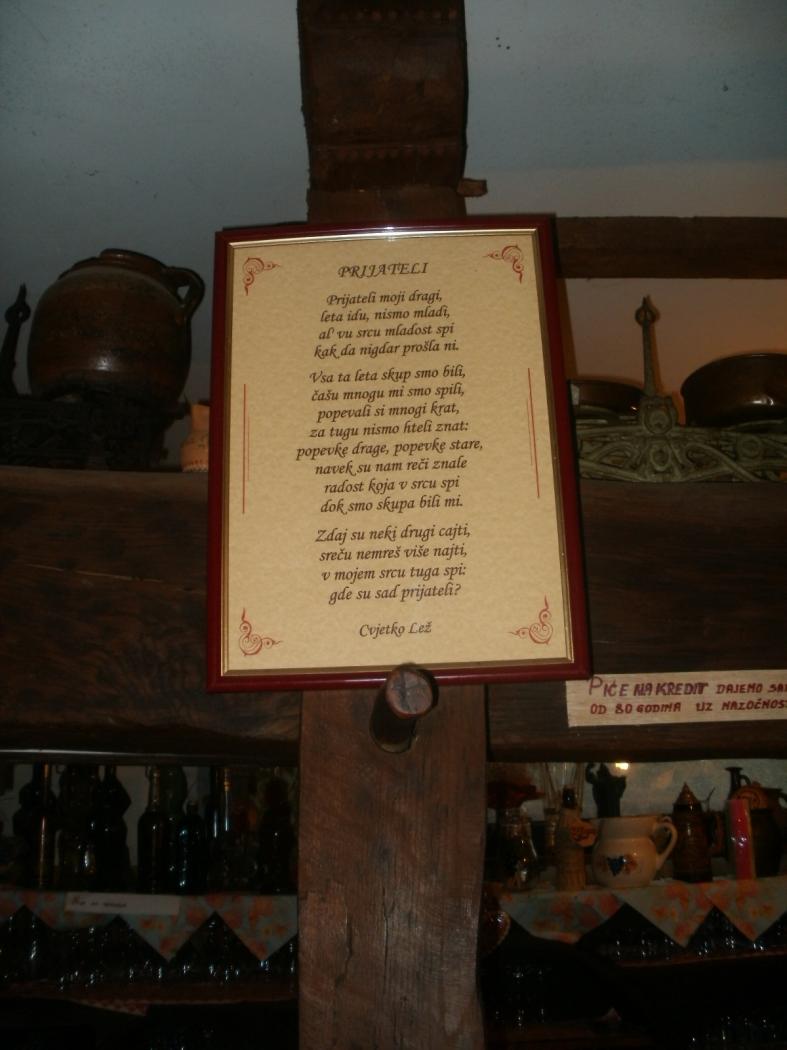 PRIJATELI
Prijateli moji dragi,
leta idu, nismo mladi,
al' vu srcu mladost spi
kak da nigdar prošla ni.
Vsa ta leta skup smo bili,
čašu mnogu mi smo spili,
popevali si mnogi krat,
za tugu nismo hteli znat:
popevke drage, popevke stare,
navek su nam reči znale
radost koja v srcu spi
dok smo skupa bili mi.
Zdaj su neki drugi cajti,
sreču nemreš više najti,
v mojem srcu tuga spi:
gde su sad prijateli?
Cvjetko Lež
PIĆE NA KREDIT DAJEMO
OD 80 GODINA UZ